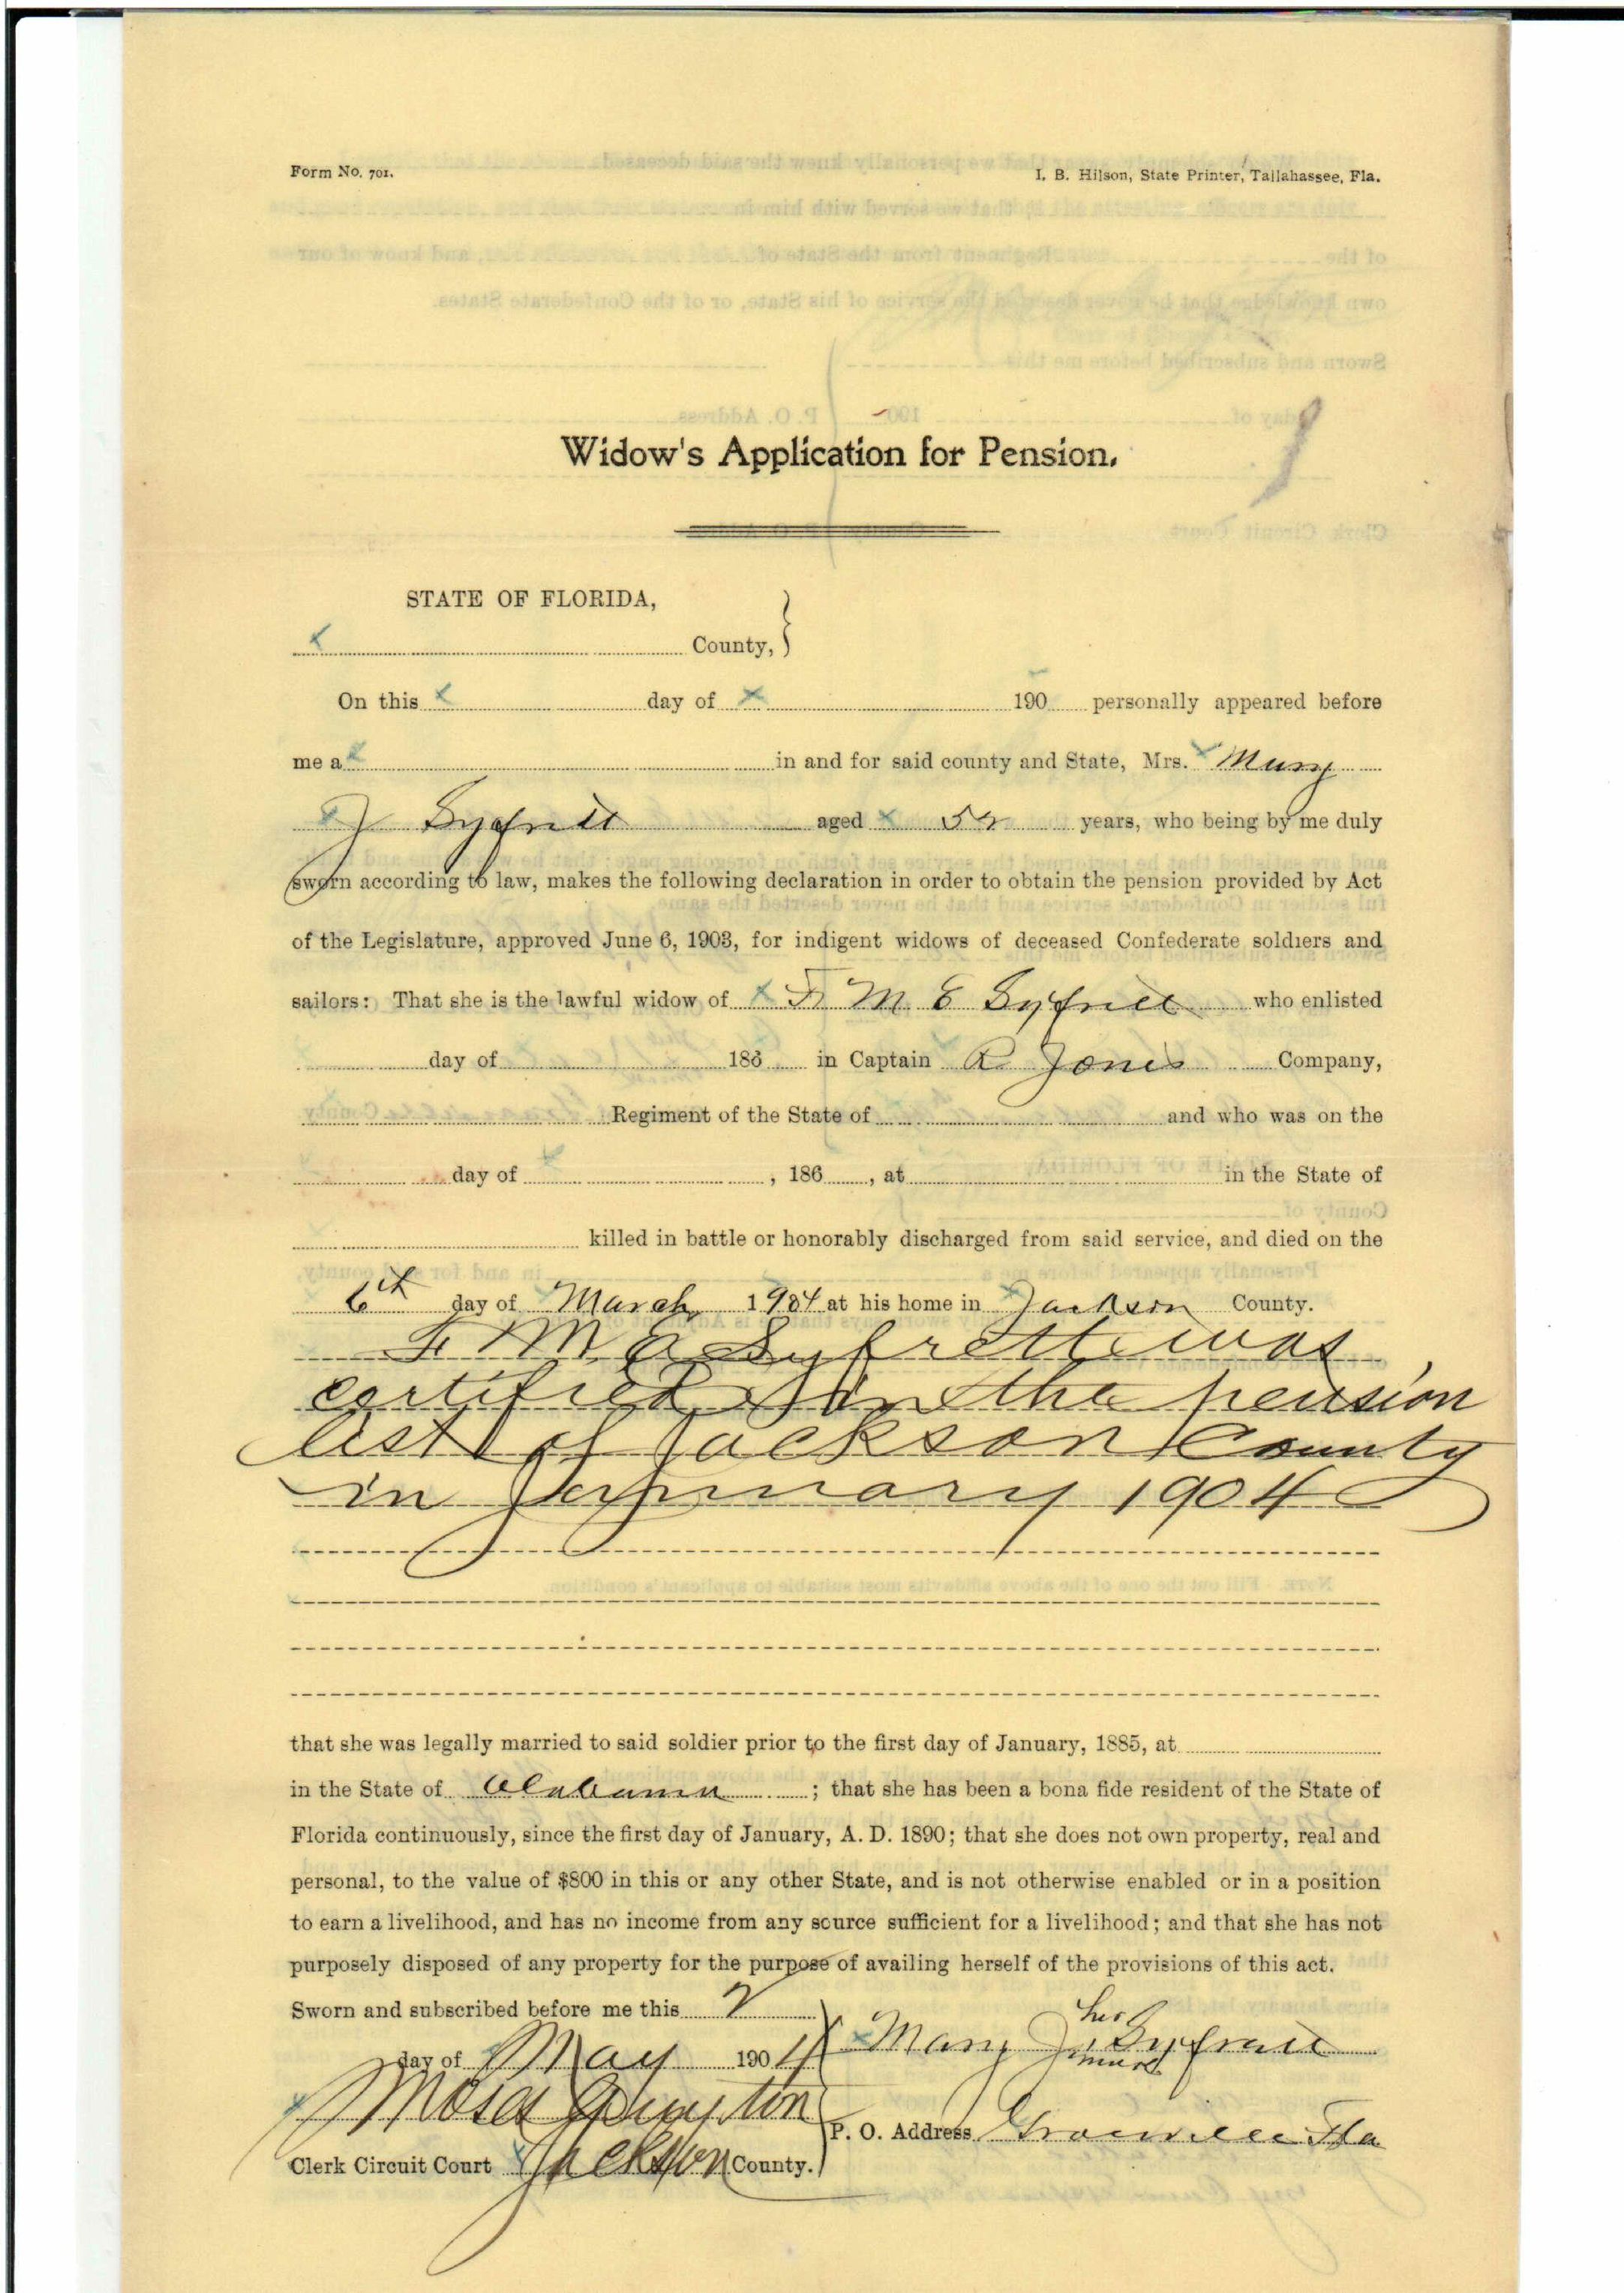 Form No. 701.
I. B. Hilson, State Printer, Tallahassee, Fla.
Widow's Application for Pension.
STATE OF FLORIDA,
County,
On this day of 190 personally appeared before
me a in and for said county and State, Mrs. Mary
J Syfrett aged 52 years, who being by me duly
sworn according to law, makes the following declaration in order to obtain the pension provided by Act
of the Legislature, approved June 6, 1903, for indigent widows of deceased Confederate soldiers and
sailors: That she is the lawful widow of F M E Syfrett who enlisted
day of 186 in Captain R Jones Company,
Regiment of the State of and who was on the
day of , 186 , at in the State of
killed in battle or honorably discharged from said service, and died on the
6th day of March 1904 at his home in Jackson County.
F M E Syfrett was
certified on the pension
list of Jackson County
in January 1904
that she was legally married to said soldier prior to the first day of January, 1885, at
in the State of Alabama ; that she has been a bona fide resident of the State of
Florida continuously, since the first day of January, A. D. 1890; that she does not own property, real and
personal, to the value of $800 in this or any other State, and is not otherwise enabled or in a position
to earn a livelihood, and has no income from any source sufficient for a livelihood; and that she has not
purposely disposed of any property for the purpose of availing herself of the provisions of this act.
Sworn and subscribed before me this 2
day of May 1904
her
Mary J. Syfrett
mark
Moses
P. O. Address Fla
Clerk Circuit Court Jackson County.